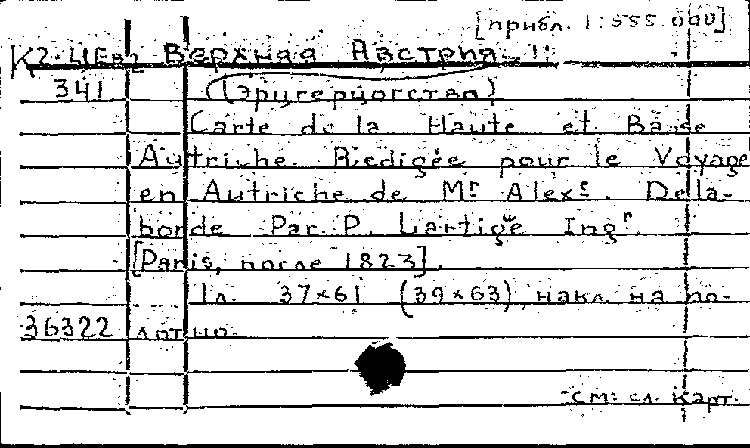 [прибл. 1:555.000]
К2-ЦЕв2 Верхная Австрия
341 (Эрцгерцогства)
Carte de la Haute et Basse
Autriche. Redigée pour le Voyage
en Autriche de Mr Alexe. Dela-
borde Par P. Lartigue Ingr.
[Paris, после 1823].
1л. 37×61 (39×63), накл. на по-
36322 лотно.
см. сл. карт.